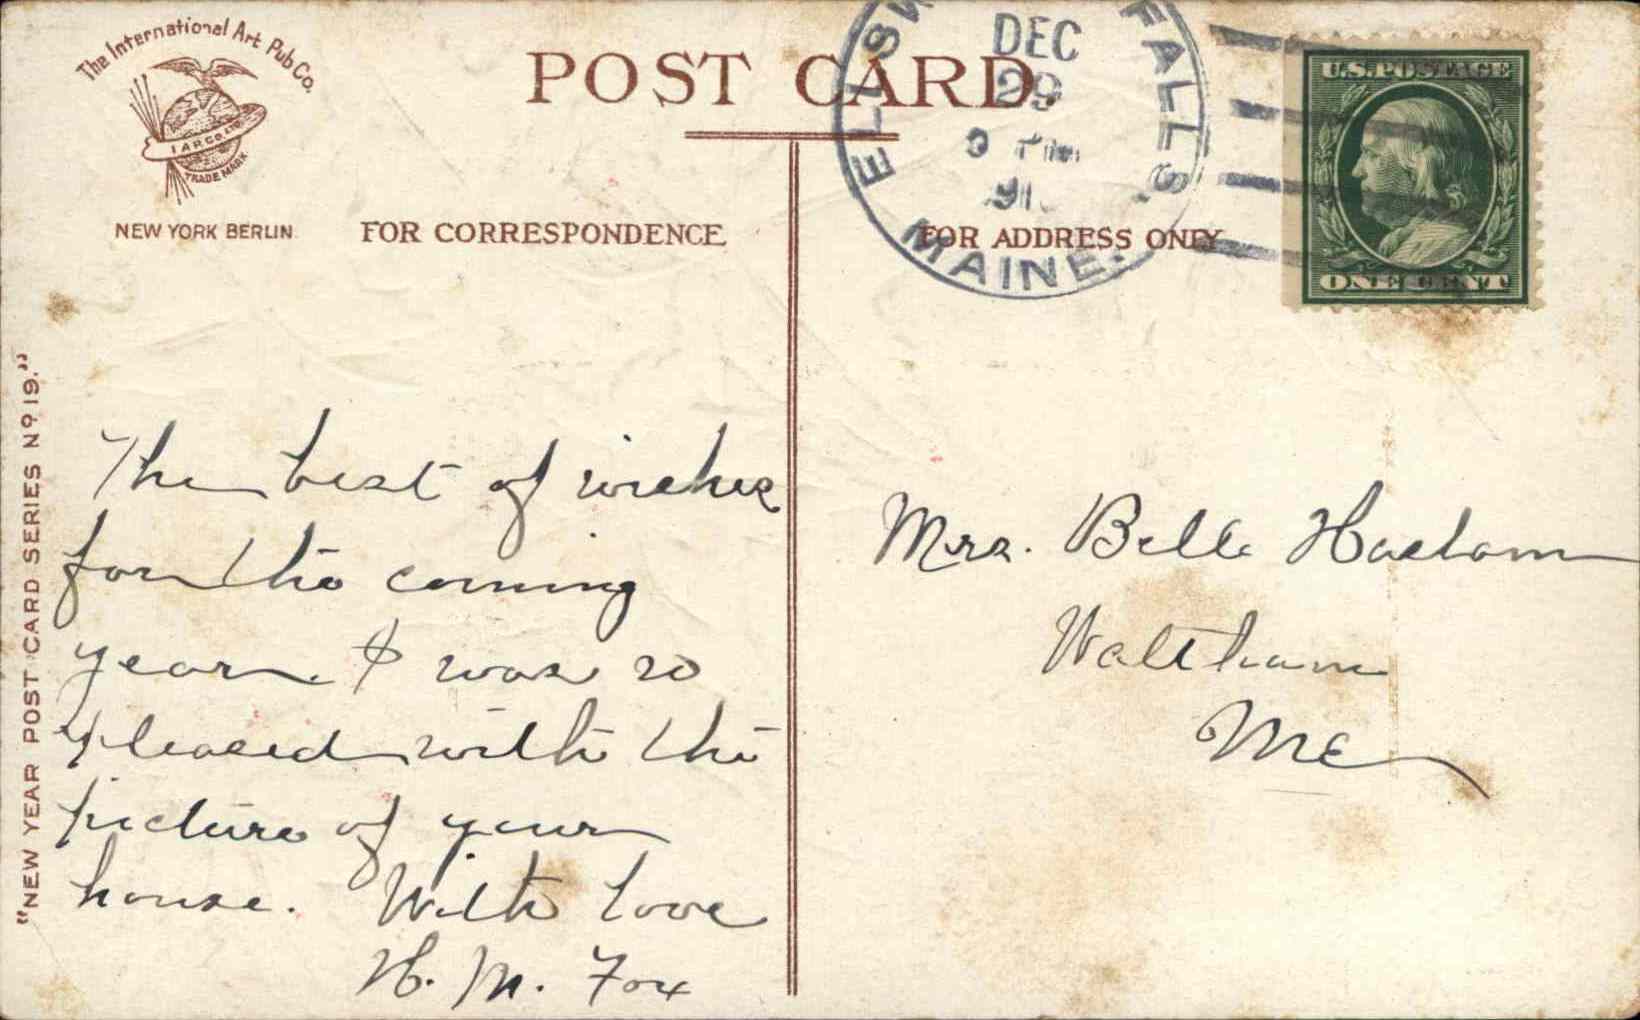 The International Art Pub Co.
I.A.P.Co.
TRADE MARK
NEW YORK BERLIN
POST CARD.
FOR CORRESPONDENCE
FOR ADDRESS ONLY
FALLS
MAINE.
DEC
29
U.S. POSTAGE
ONE CENT
"NEW YEAR POST CARD SERIES No 19."
The best of wishes
for the coming
year. I was so
pleased with the
picture of your
house. With love
H. M. Fox
Mrs. Belle Haslam
Waltham
Me